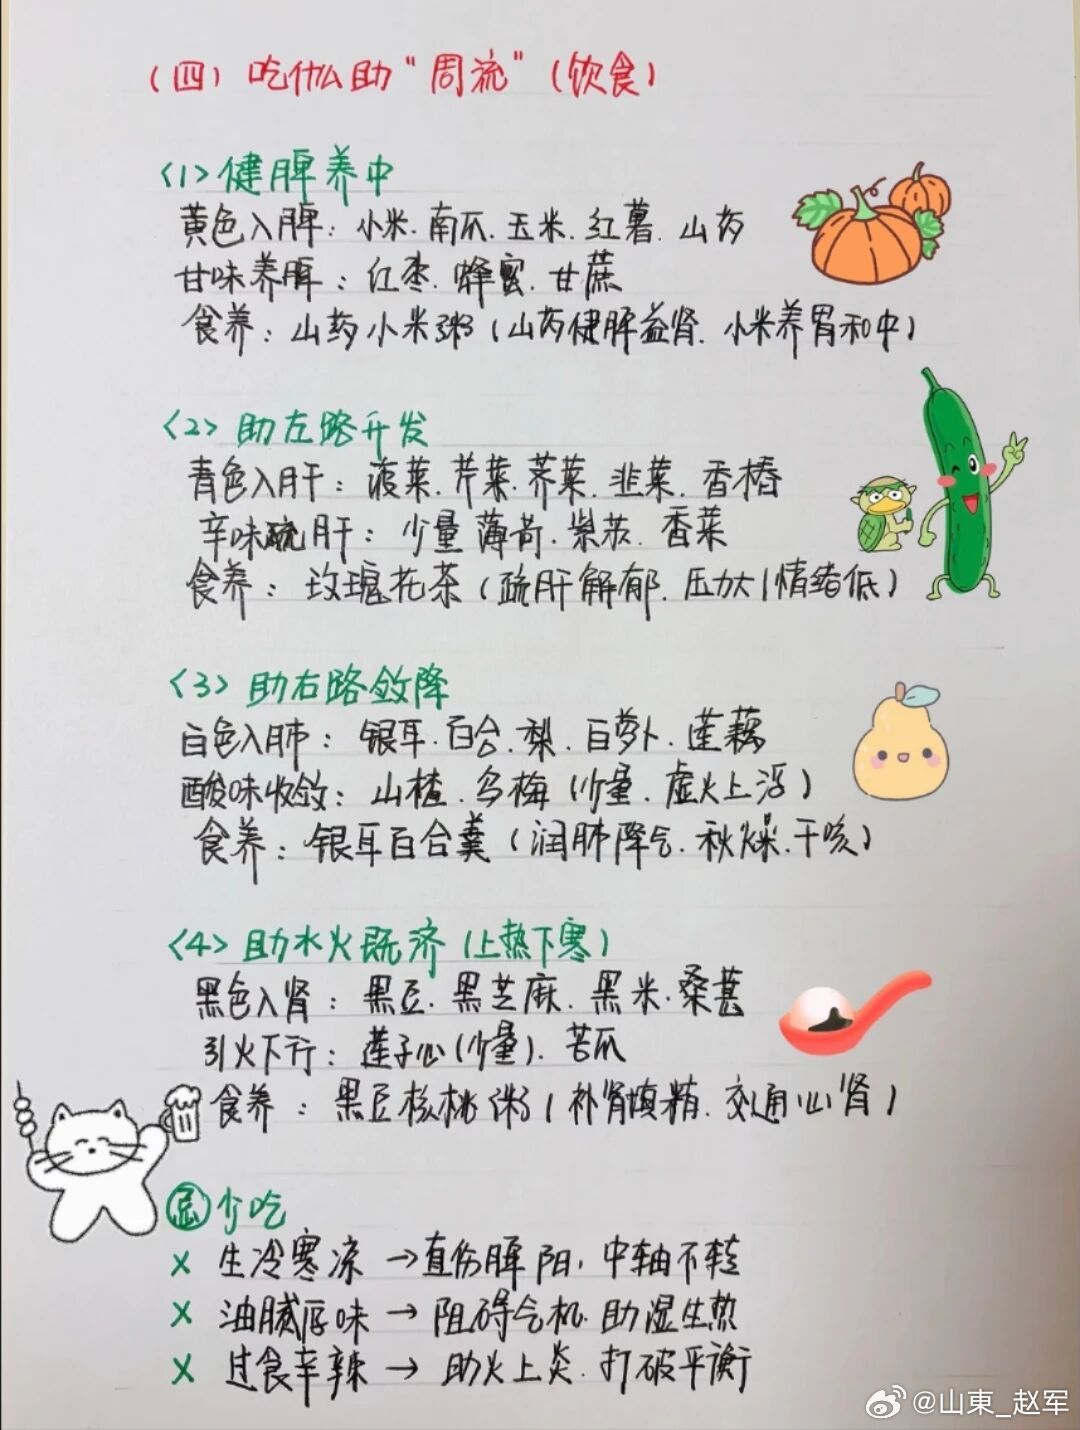 （四）吃什么助“周流”（饮食）
<1>健脾养中
黄色入脾：小米.南瓜.玉米.红薯.山药
甘味养脾：红枣.蜂蜜.甘蔗
食养：山药小米粥（山药健脾益肾.小米养胃和中）
<2>助左路升发
青色入肝：菠菜.芹菜.荠菜.韭菜.香椿
辛味疏肝：少量薄荷.紫苏.香菜
食养：玫瑰花茶（疏肝解郁.压力大|情绪低）
<3>助右路敛降
白色入肺：银耳.百合.梨.白萝卜.莲藕
酸味收敛：山楂.乌梅（少量.虚火上浮）
食养：银耳百合羹（润肺降气.秋燥.干咳）
<4>助水火既济（上热下寒）
黑色入肾：黑豆.黑芝麻.黑米.桑葚
引火下行：莲子心（少量）.苦瓜
食养：黑豆核桃粥（补肾填精.交通心肾）
忌少吃
X 生冷寒凉→直伤脾阳，中轴不转
X 油腻厚味→阻碍气机.助湿生热
X 过食辛辣→助火上炎.打破平衡
@山東_赵军